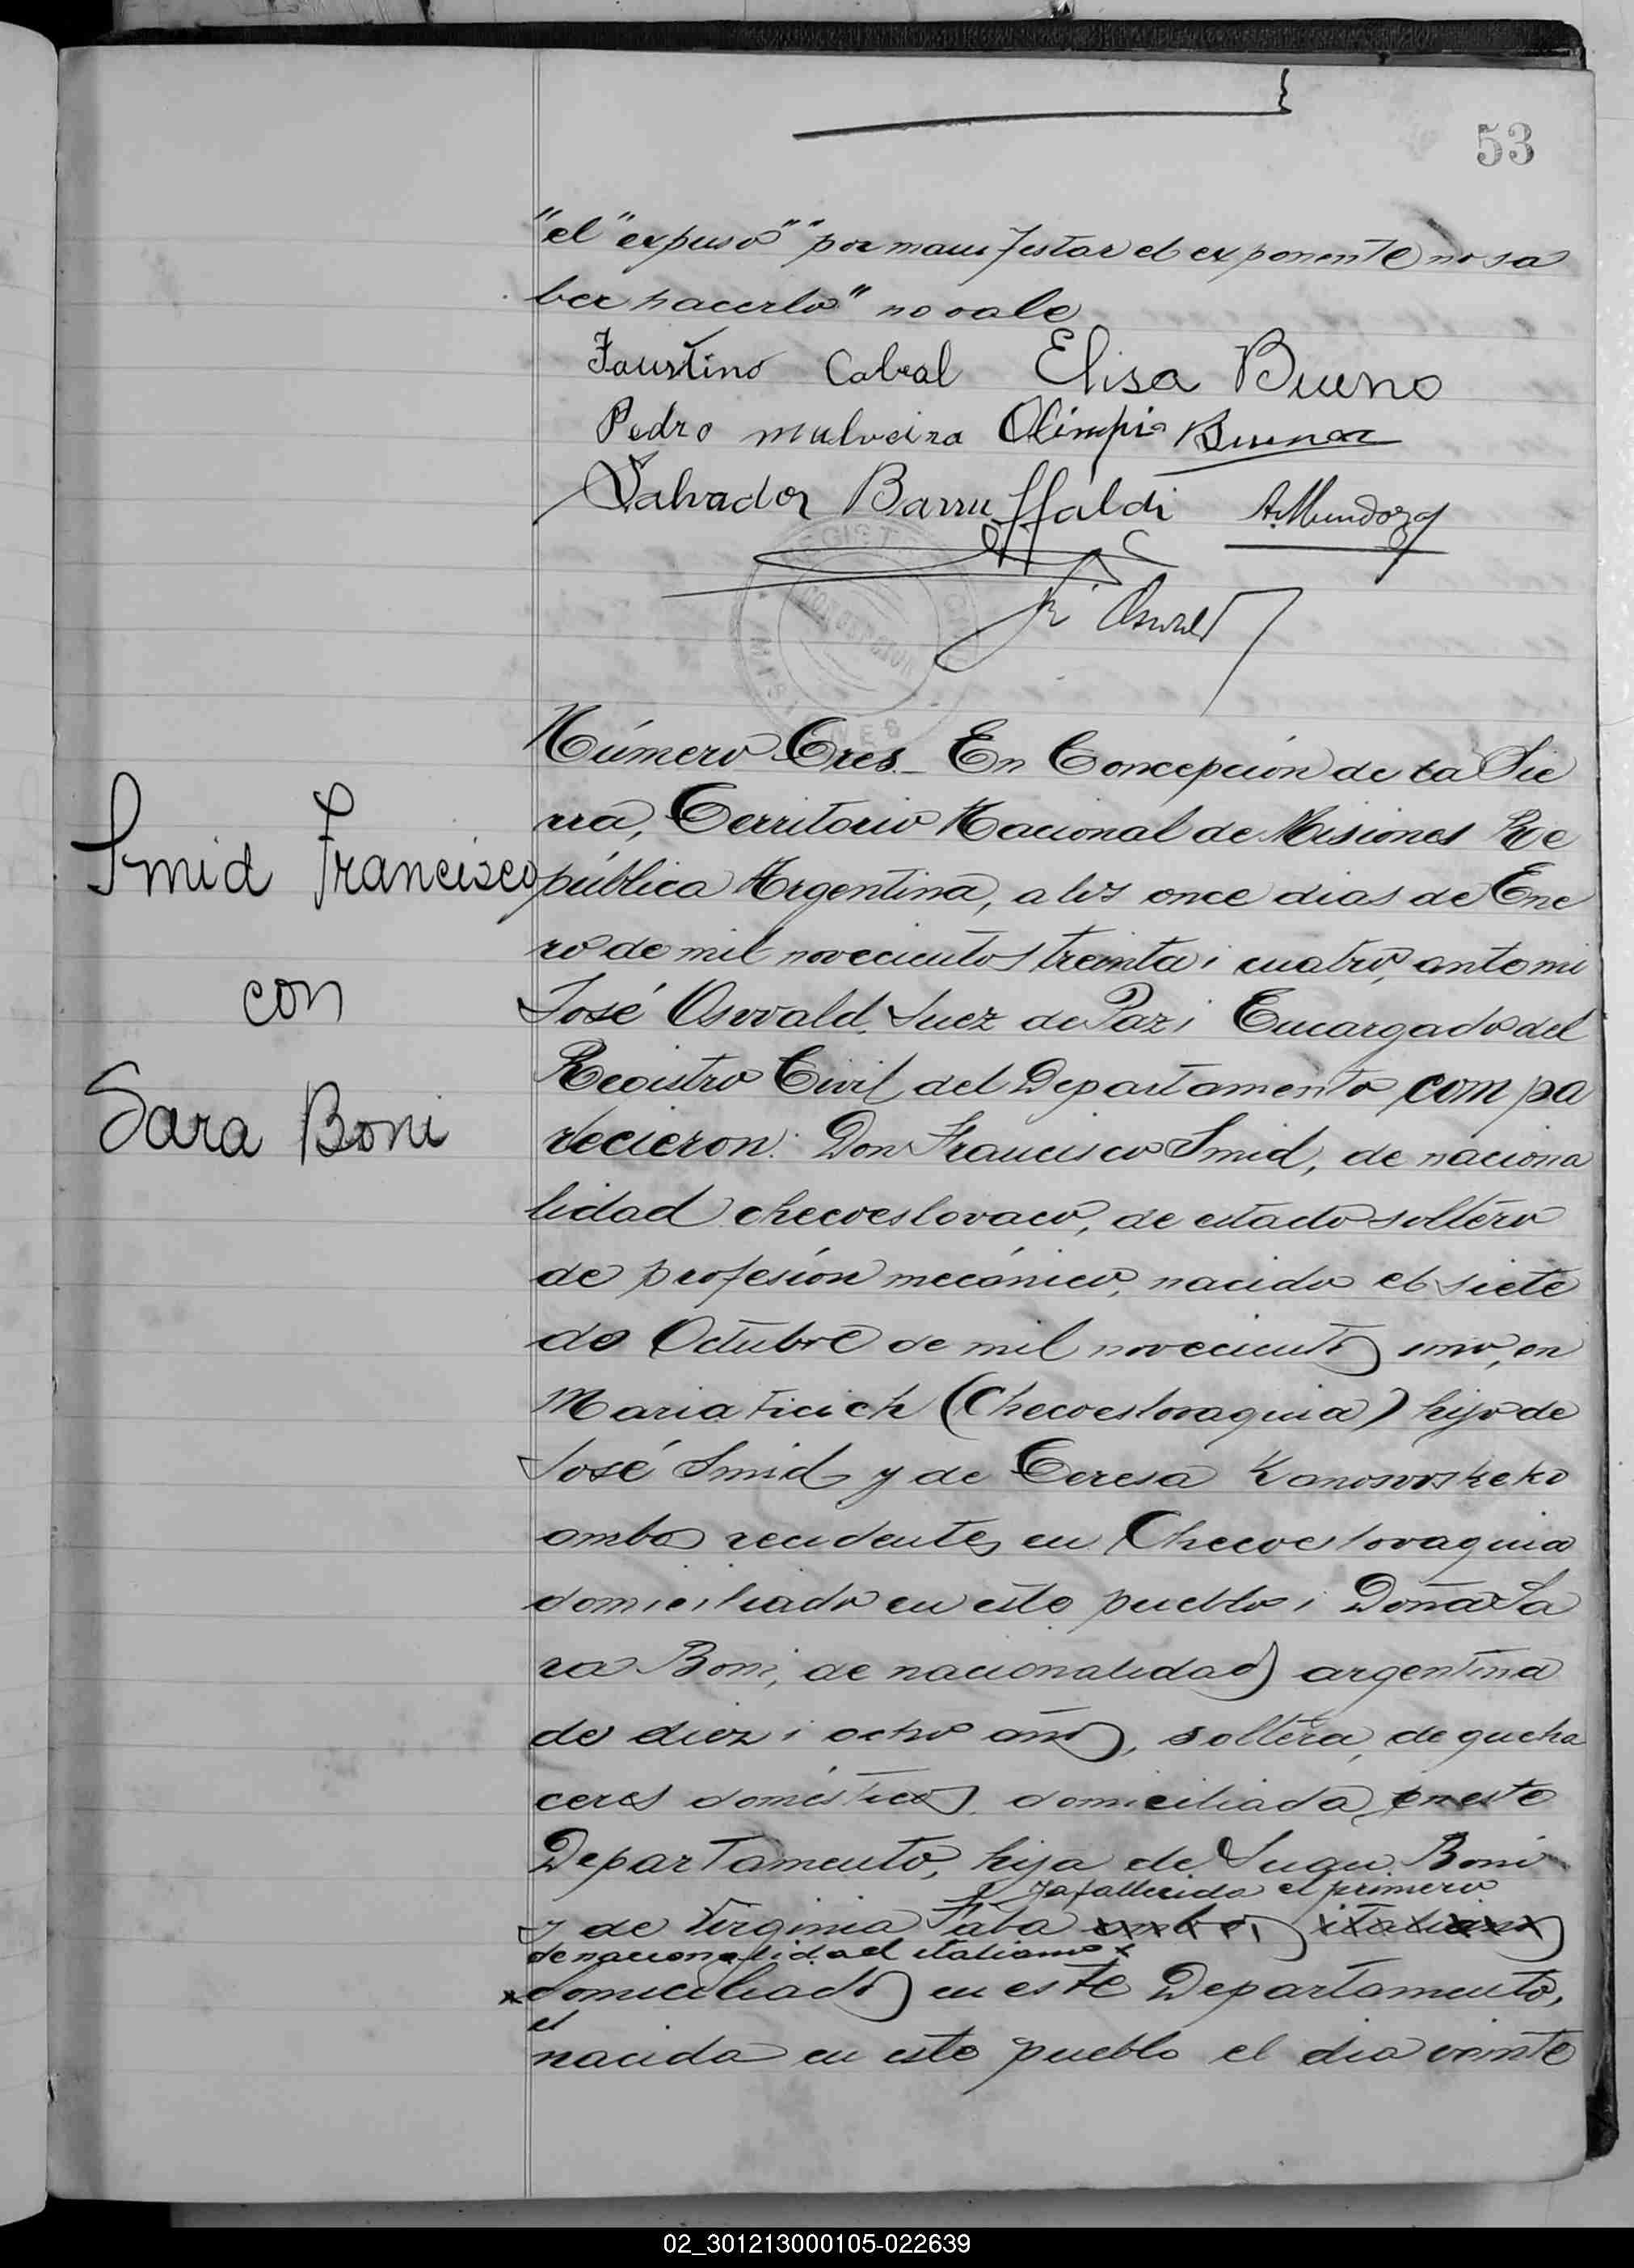 53
"el" expuso" "por manifestar el exponente no sa
ber hacerlo" no vale
Faustino Cabral Elisa Bueno
Pedro mulveira Olimpia Buenoz
Salvador Barruffaldi A. Mendoza
J. Oswald
REGISTRO CIVIL
CONCEPCION
MISIONES
Número Tres.- En Concepción de la Sie
rra, Territorio Nacional de Misiones Re
pública Argentina, a los once dias de Ene
ro de mil novecientos treinta i cuatro, ante mi
José Oswald, Juez de Paz i Encargado del
Registro Civil del Departamento compa
recieron: Don Francisco Smid, de naciona
lidad checoeslovaco, de estado soltero
de profesión mecánico, nacido el siete
de Octubre de mil novecientos uno, en
Maria Ficich (Checoeslovaquia) hijo de
José Smid y de Teresa
ambos recidentes en Checoeslovaquia
domiciliado en este pueblo i Doña Sa
ra Boni, de nacionalidad argentina
de diez i ocho años, soltera, de queha
ceres domésticos, domiciliada en este
Departamento, hija de Boni
ya fallecido el primero
y de Virginia Faba ambos italianos
de nacionalidad italiano x
x domiciliados en este Departamento,
el
nacida en este pueblo el dia veinte
Smid Francisco
con
Sara Boni
02_301213000105-022639